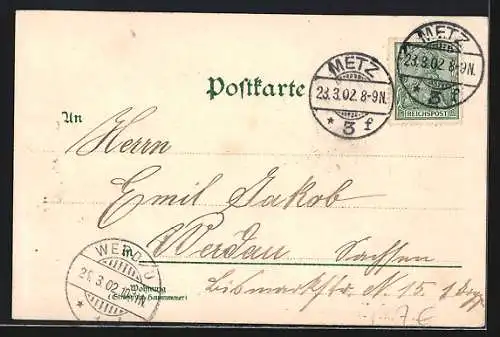 METZ
23.3.02.8-9N.
* 3 f
METZ
23.3.02.8-9N.
* 3 f
REICHSPOST
Postkarte
An
Herrn
Emil Jakob
in Werdau Sachsen
WERDAU
3.02.
Wohnung
(Straße und Hausnummer)
Bismarckstr. N. 15. 1
7.€